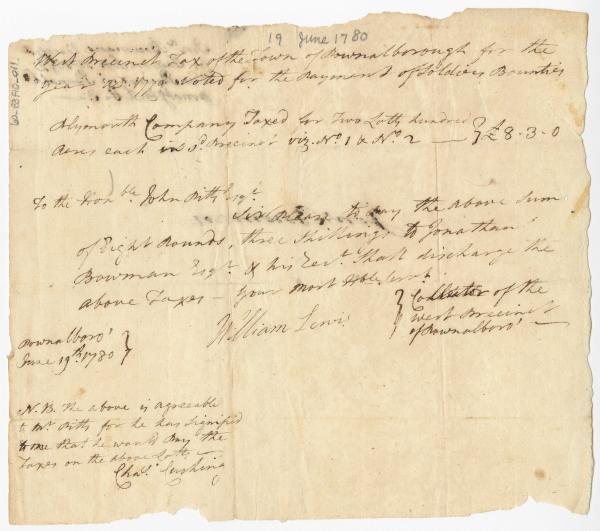 19 June 1780
West Precinct Tax of the Town of Pownalborough for the
Year 1779 Voted for the Payment of Soldiers Bounties
Plymouth Company Taxed for Two Lotts hundred
Acres each in sd. Precinct viz. No. 1 & No. 2 — } £8.3.0
To the Honble John Pitts Esqr.
Sir Please to pay the above Sum
of Eight Pounds, three Shillings to Jonathan
Bowman Esqr. & his Rect. Shall discharge the
above Taxes — Your most Hble Servt.
William Lewis } Collector of the
West Precinct
of Pownalboro' —
Pownalboro'
June 19th. 1780 }
N.B. The above is agreeable
to Mr. Pitts for he has signified
to me that he would Pay the
Taxes on the above Lotts —
Chas. Cushing